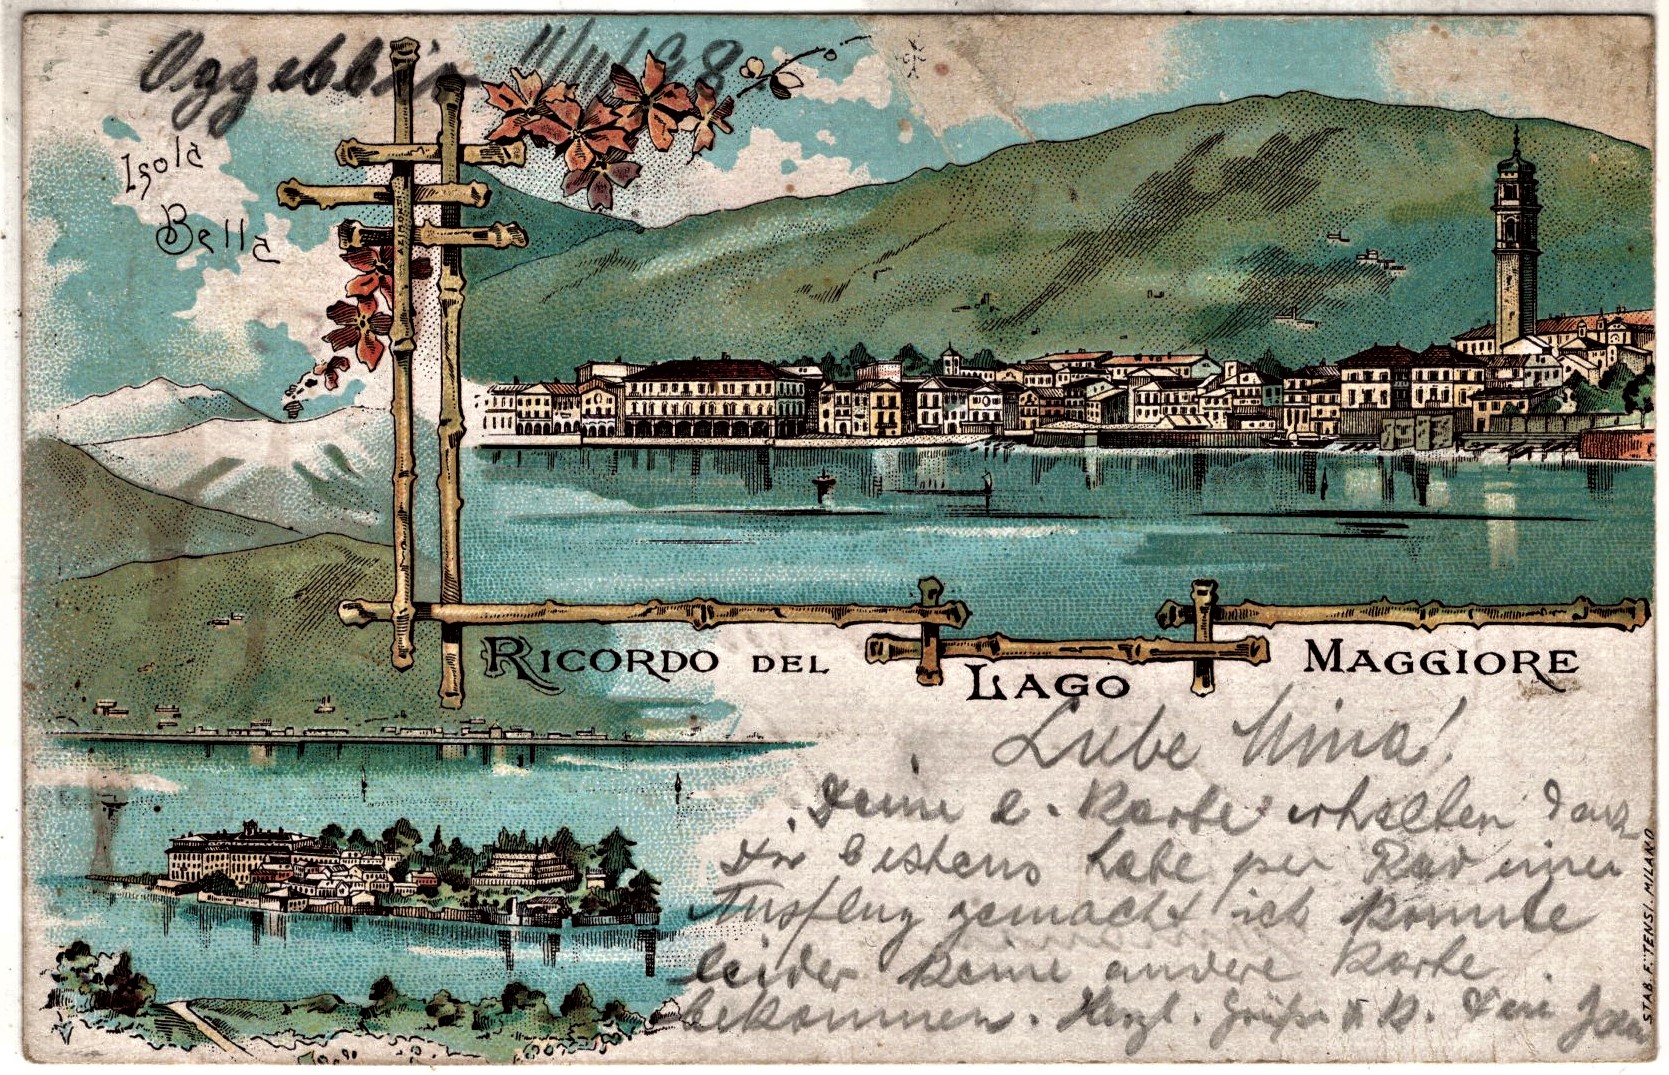 Oggebbio 11/11/98.
Isola
Bella
RICORDO DEL
LAGO
MAGGIORE
Liebe Mina!
Deine l. Karte erhalten Dank
Dir bestens habe per Rad einen
Ausflug gemacht ich konnte
leider keine andere Karte
bekommen. Herzl. Grüße u. K. Dein
STAB. F. TENSI. MILANO